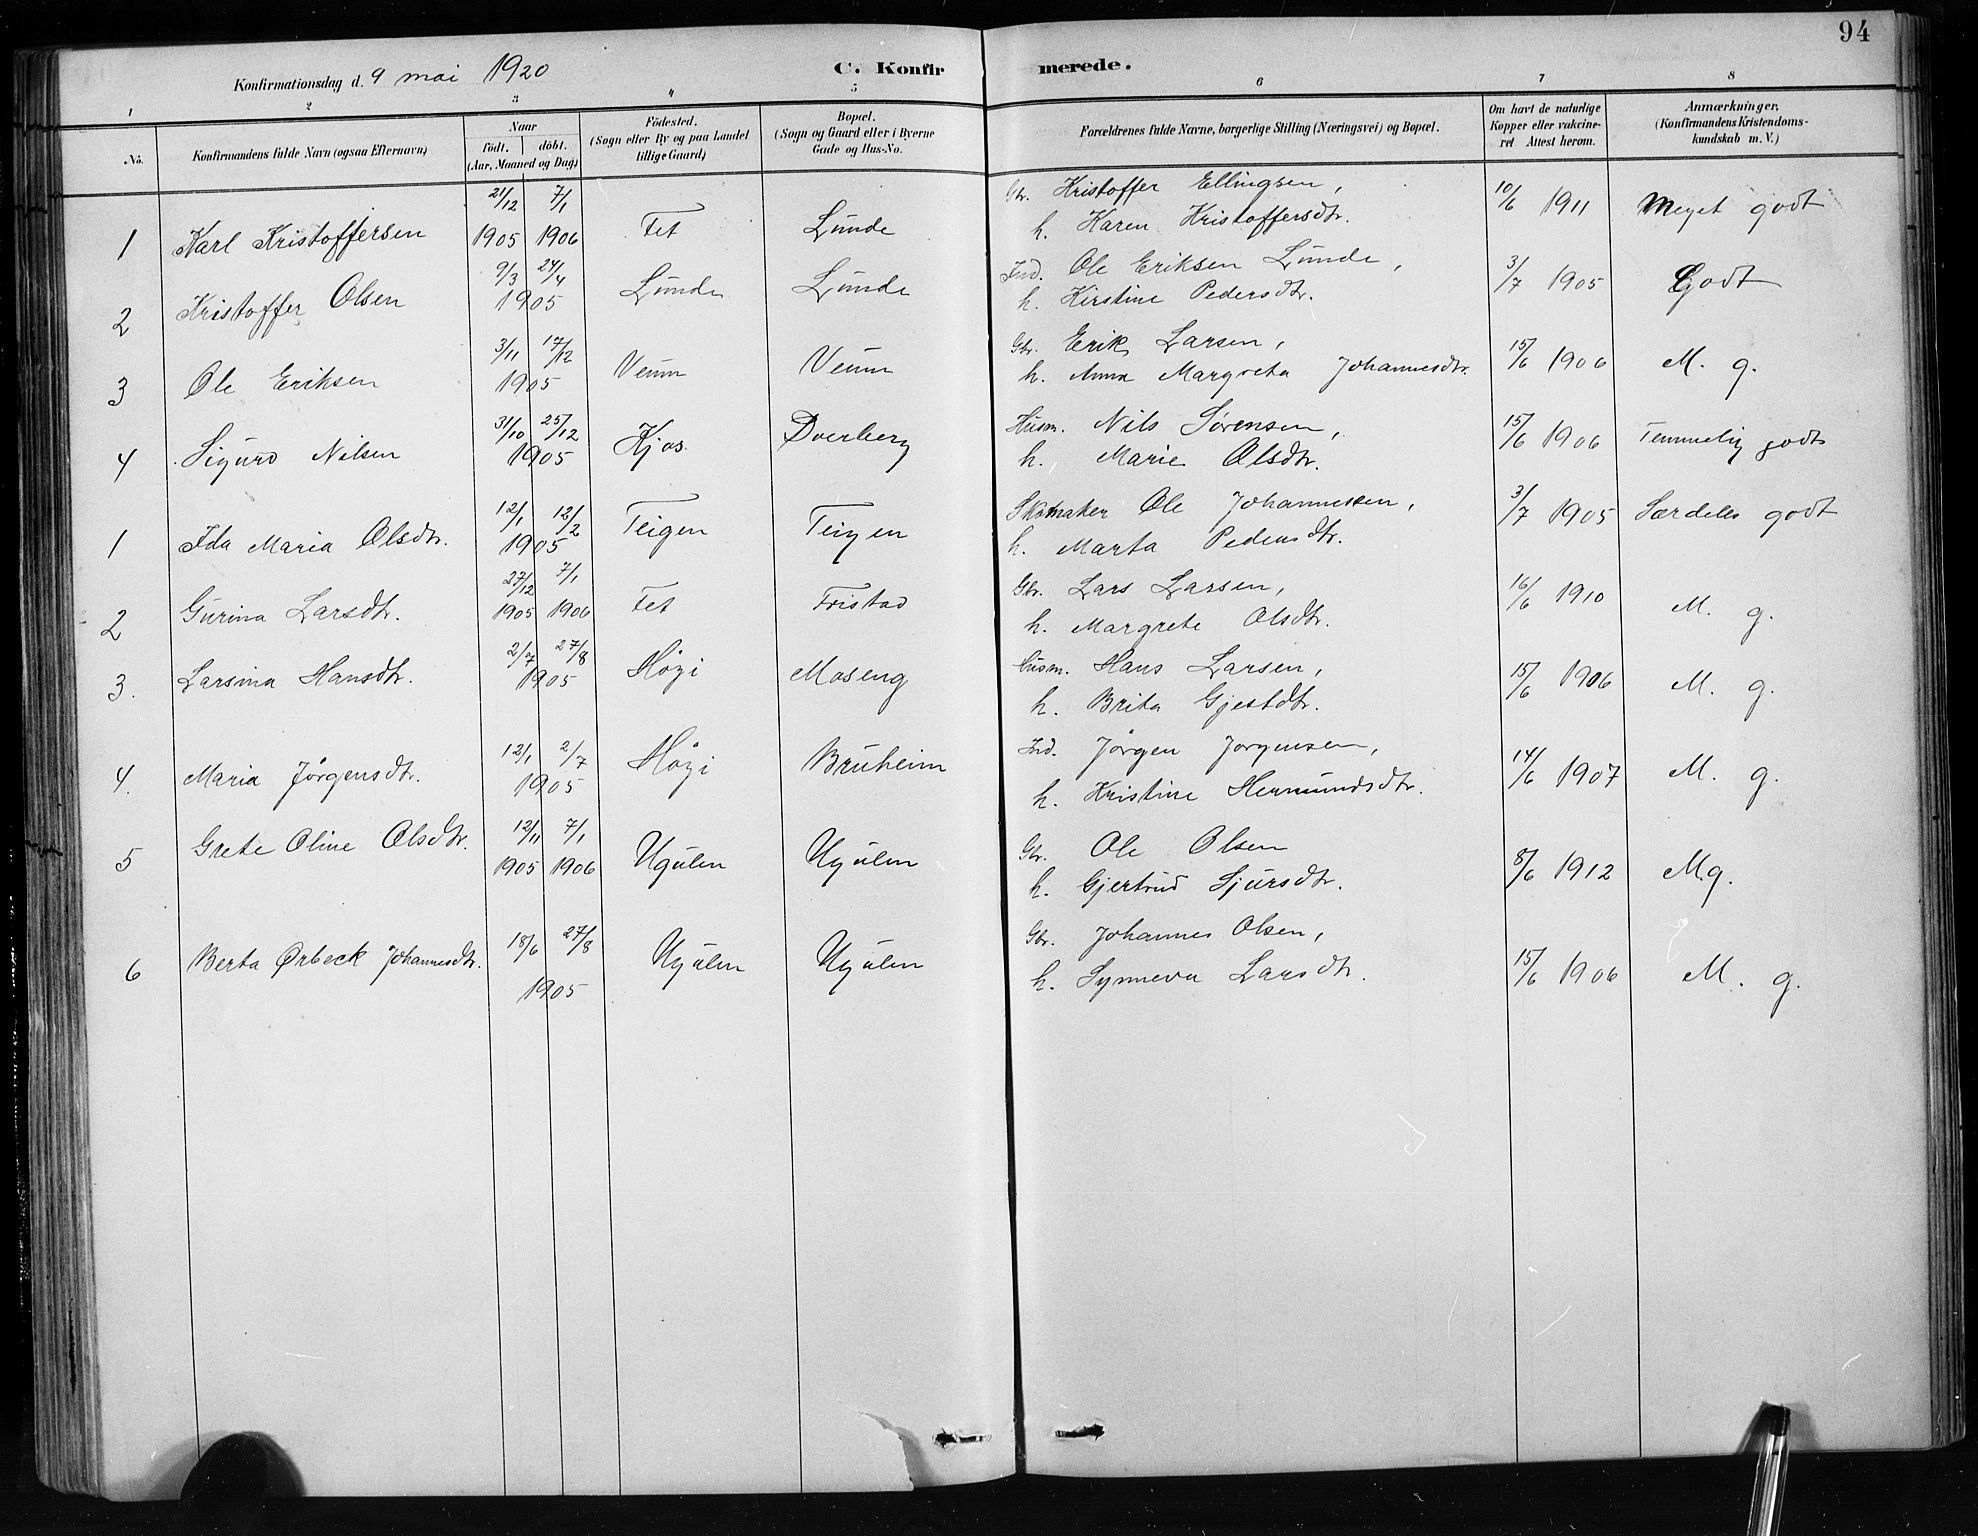 94
Konfirmationsdag d. 9 mai 1920
C. Konfirmerede.
1 2 3 4 5 6 7 8
No.
Konfirmandens fulde Navn (ogsaa Efternavn)
Naar födt. döbt. (Aar, Maaned og Dag)
Födested. (Sogn eller By og paa Landet tillige Gaard)
Bopæl. (Sogn og Gaard eller i Byerne Gade og Hus-No.
Forældrenes fulde Navne, borgerlige Stilling (Næringsvei) og Bopæl.
Om havt de naturlige Kopper eller vakcineret Attest herom.
Anmærkninger. (Konfirmandens Kristendomskundskab m. V.)
1 Karl Kristoffersen 21/12 1905 7/1 1906 Fet Lunde Gbr. Kristoffer Ellingsen, 10/6 1911 Meget godt
h. Karen Kristoffersdtr.
2 Kristoffer Olsen 9/3 24/4 1905 Lunde Lunde Ind. Ole Eriksen Lunde, 3/7 1905 Godt
h. Kirstine Pedersdtr.
3 Ole Eriksen 3/11 17/12 1905 Veum Veum Gbr. Erik Larsen, 15/6 1906 M. g.
h. Anna Margreta Johannesdtr.
4 Sigurd Nilsen 31/10 25/12 1905 Kjos Dverberg Husm. Nils Sørensen, 15/6 1906 Temmelig godt
h. Marie Olsdtr.
1 Ida Maria Olsdtr. 12/1 12/2 1905 Teigen Teigen Skomaker Ole Johannessen, 3/7 1905 Særdeles godt
h. Marta Pedersdtr.
2 Gurina Larsdtr. 27/12 1905 7/1 1906 Fet Fristad Gbr. Lars Larsen, 16/6 1910 M. g.
h. Margrete Olsdtr.
3. Larsina Hansdtr. 2/7 27/8 1905 Høgi Moseng Husm. Hans Larsen, 15/6 1906 M. g.
h. Brita Gjestdtr.
4. Maria Jörgensdtr. 12/1 2/7 1905 Høgi Bruheim Ind. Jörgen Jorgensen, 14/6 1907 M. g.
h. Kristine Hermundsdtr.
5 Grete Oline Olsdtr. 12/11 1905 7/1 1906 Ugulen Ugulen Gbr. Ole Olsen 8/6 1912 M.g.
h. Gjertrud Sjursdtr.
6 Berta Ørbeck Johannesdtr. 18/6 27/8 1905 Ugulen Ugulen Gbr. Johannes Olsen, 15/6 1906 M. g.
h. Synneva Larsdtr.